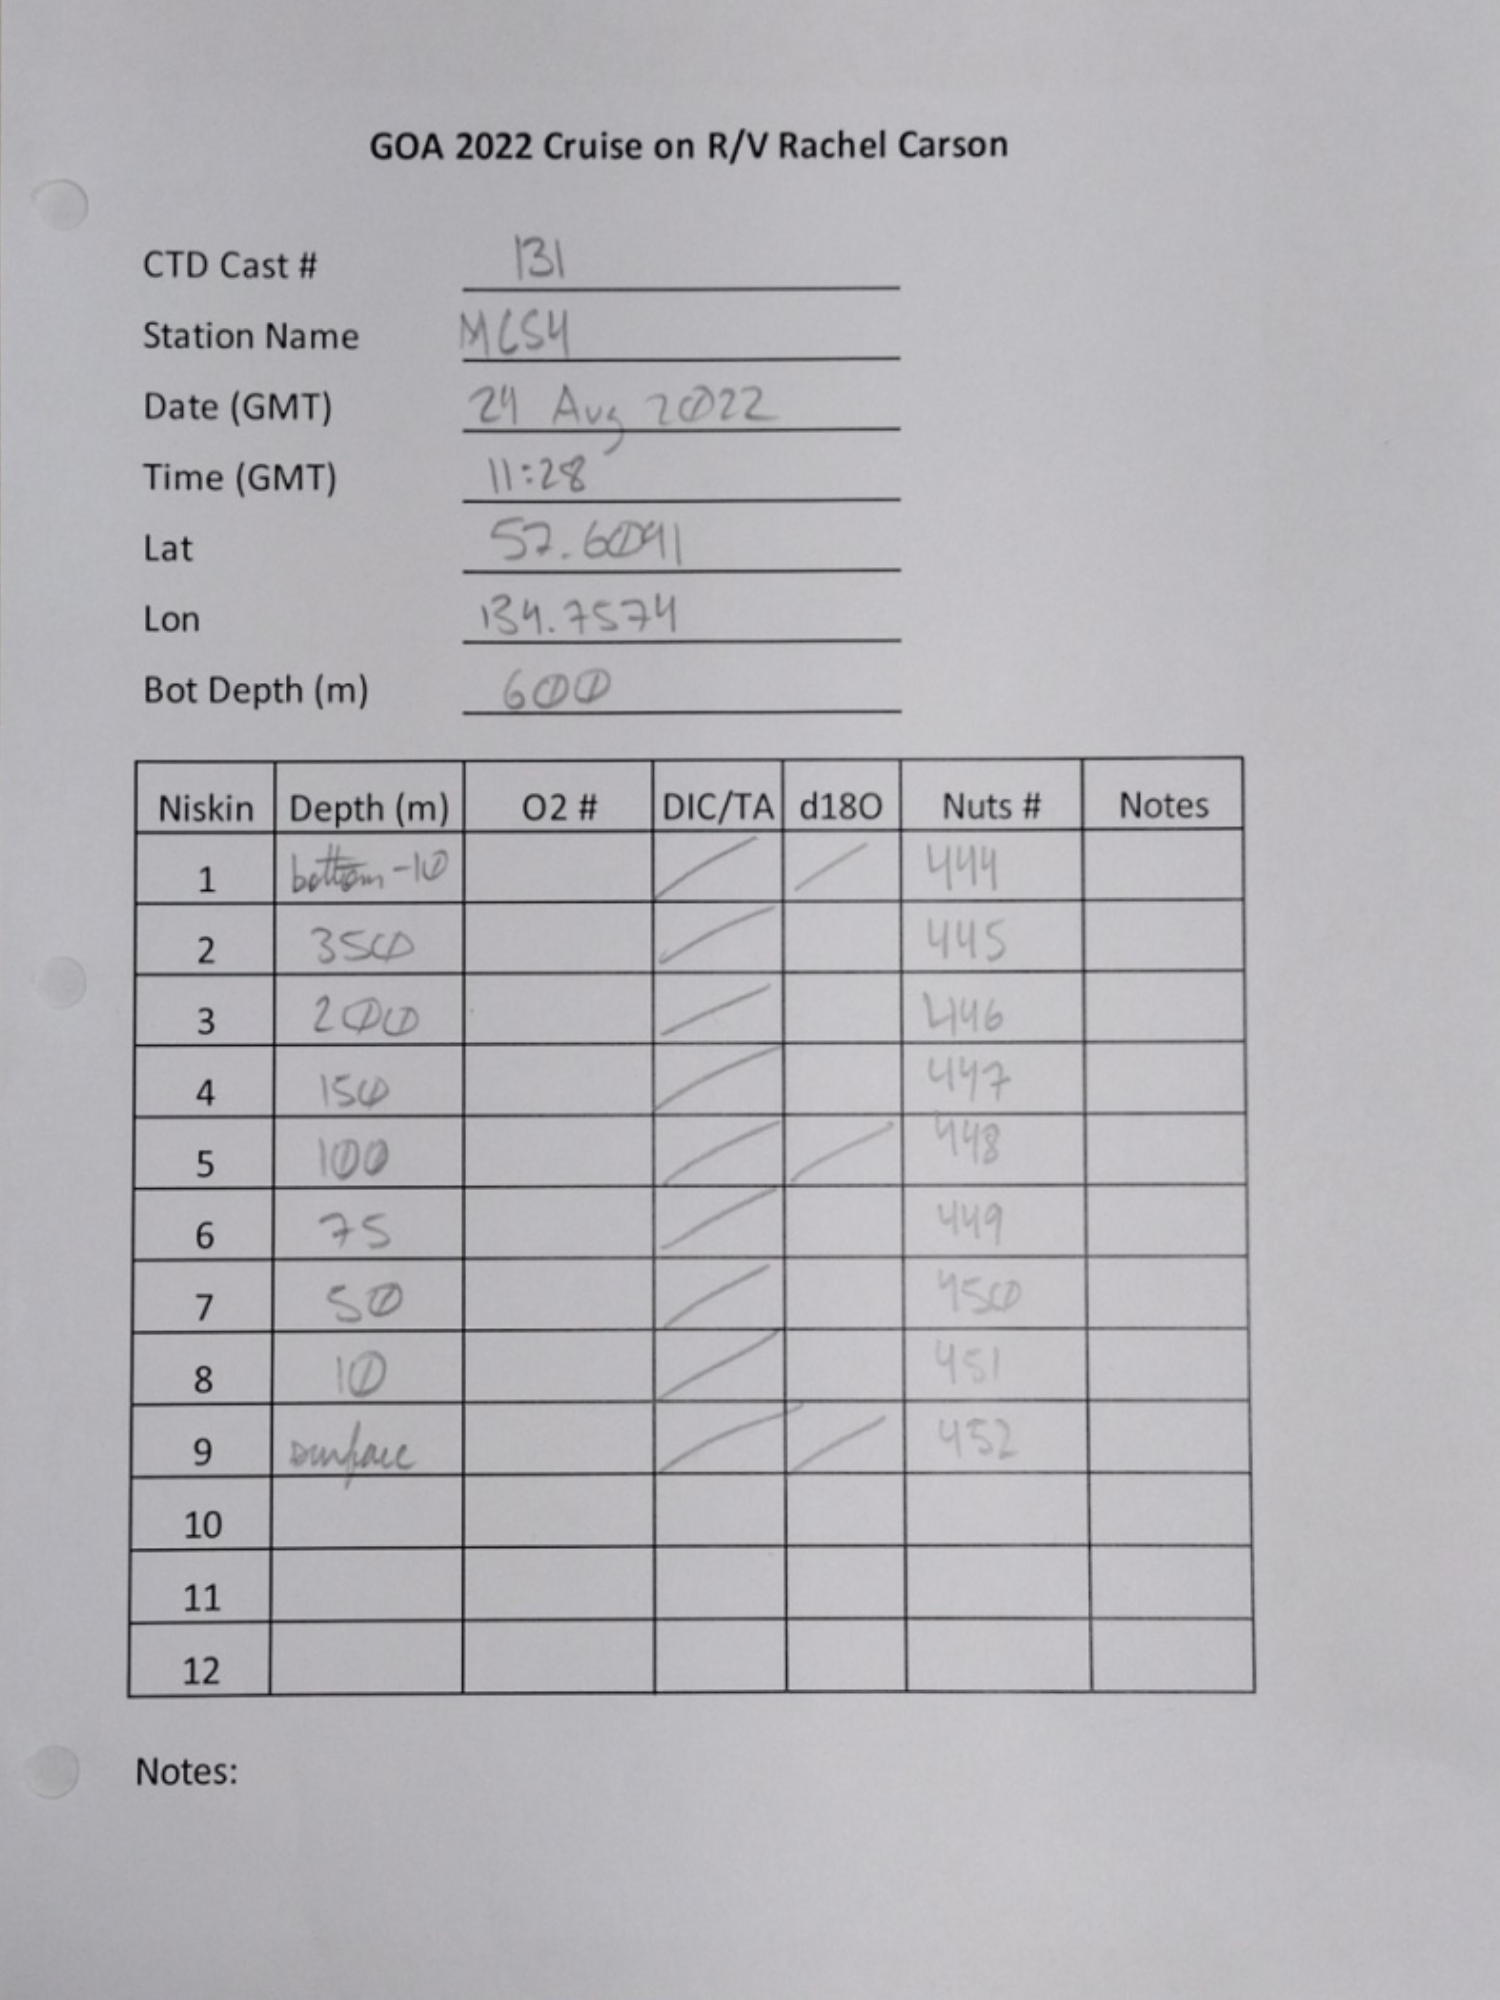 GOA 2022 Cruise on R/V Rachel Carson
CTD Cast # 131
Station Name MCS4
Date (GMT) 24 Aug 2022
Time (GMT) 11:28
Lat 57.6091
Lon 134.7574
Bot Depth (m) 600
Niskin Depth (m) O2 # DIC/TA d18O Nuts # Notes
1 bottom -10 / / 444
2 350 / 445
3 200 / 446
4 150 / 447
5 100 / / 448
6 75 / 449
7 50 / 450
8 10 / 451
9 surface / / 452
10
11
12
Notes: